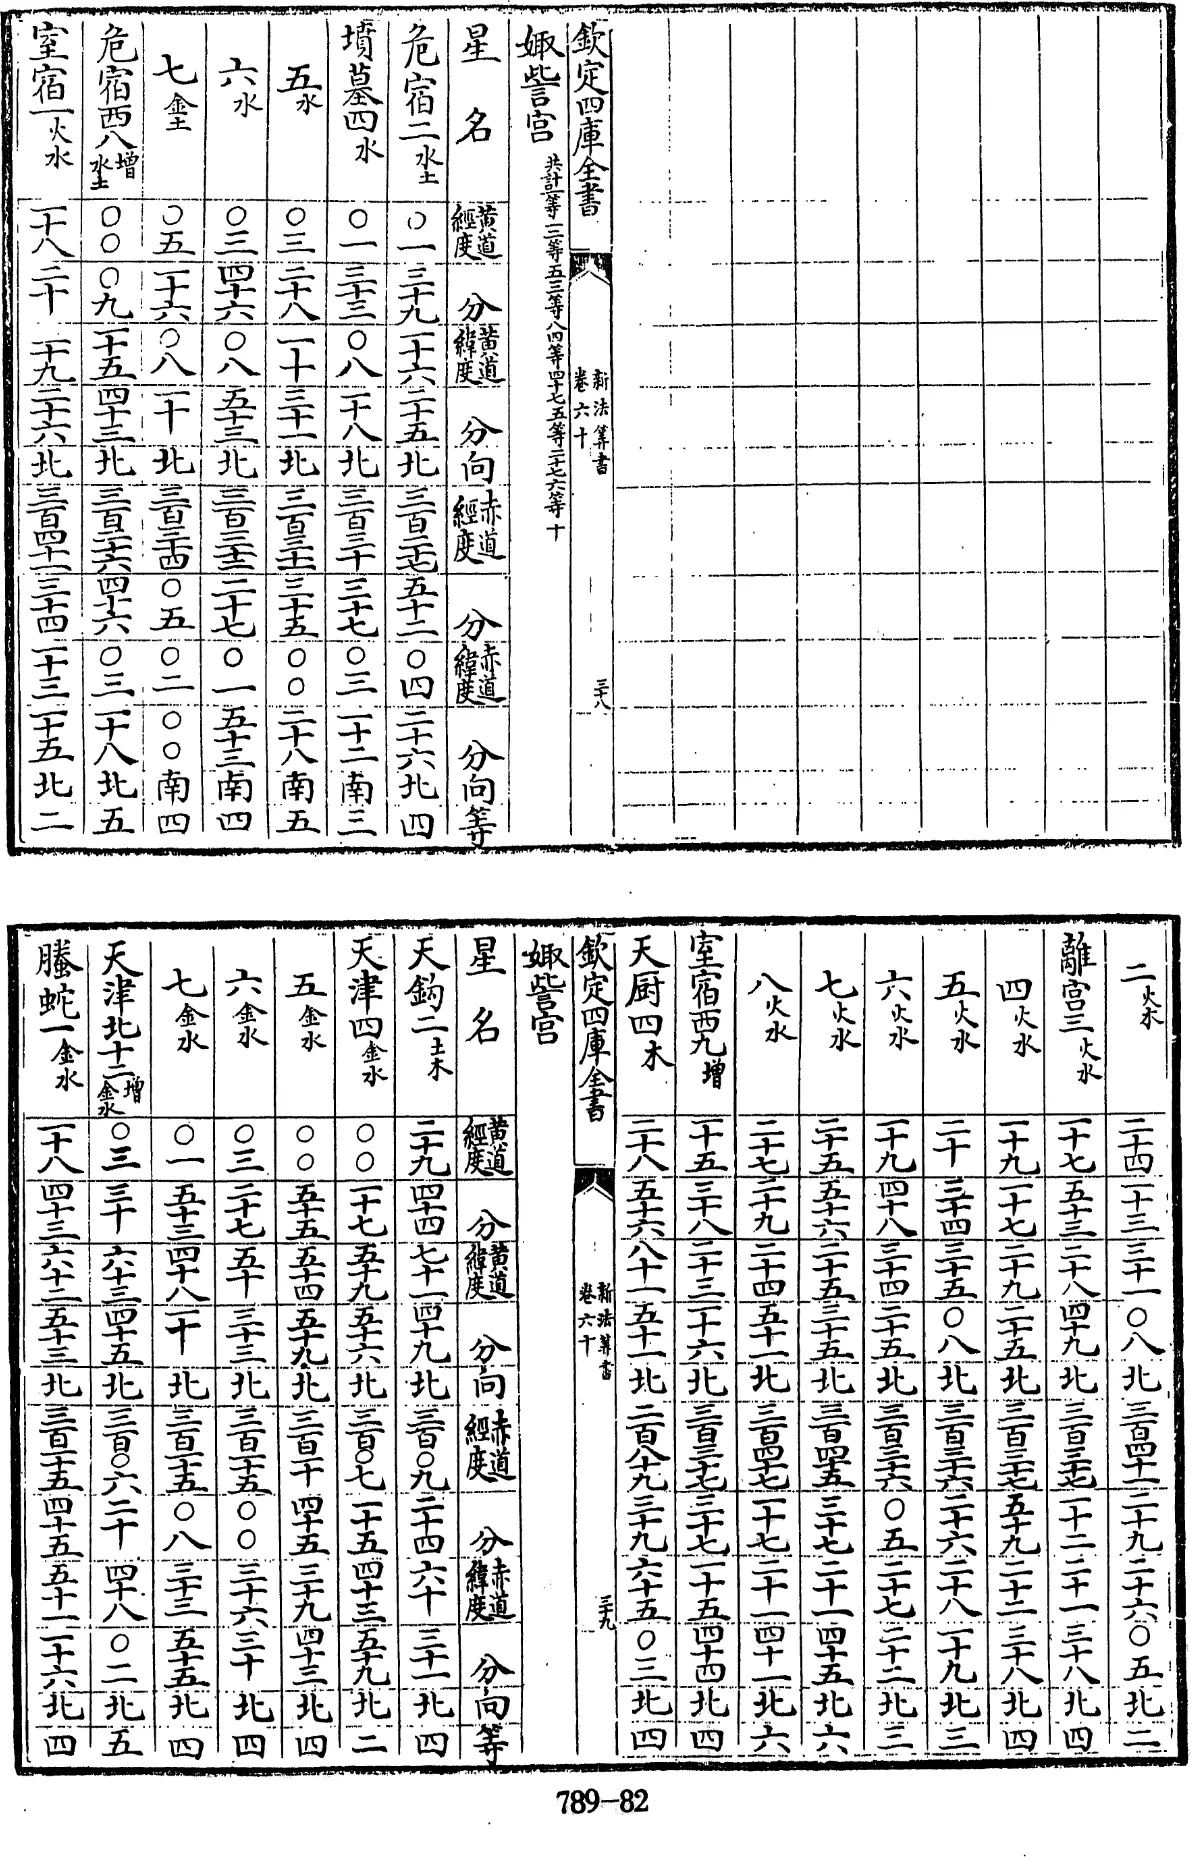 欽定四庫全書 新法算書 卷六十 三十八
娵訾宮 共計一等一二等五三等八四等四十七五等二十七六等十
星名 黃道經度 分 黃道緯度 分 向 赤道經度 分 赤道緯度 分 向 等
危宿二水土 〇一 三十九 一十六 二十五 北 三百二十七 五十二 〇四 二十六 北 四
墳墓四水 〇一 三十三 〇八 一十八 北 三百三十 三十七 〇三 一十二 南 三
五水 〇三 二十八 一十 三十一 北 三百三十一 三十五 〇〇 二十八 南 五
六水 〇三 四十六 〇八 五十三 北 三百三十二 二十七 〇一 五十三 南 四
七金土 〇五 一十六 〇八 一十 北 三百三十四 〇五 〇二 〇〇 南 四
危宿西八增水土 〇〇 〇九 一十五 四十三 北 三百二十六 四十六 〇三 一十八 北 五
室宿一火水 一十八 二十 一十九 二十六 北 三百四十一 三十四 一十三 一十五 北 二
二火木 二十四 一十三 三十一 〇八 北 三百四十一 二十九 二十六 〇五 北 二
離宮三火水 一十七 五十三 二十八 四十九 北 三百三十七 一十二 二十一 三十八 北 四
四火水 一十九 一十七 二十九 二十五 北 三百三十七 五十九 二十二 三十八 北 四
五火水 二十 三十四 三十五 〇八 北 三百三十六 二十六 二十八 一十九 北 三
六火水 一十九 四十八 三十四 二十五 北 三百三十六 〇五 二十七 二十二 北 三
七火水 二十五 五十六 二十五 三十五 北 三百四十五 三十七 二十一 四十五 北 六
八火水 二十七 二十九 二十四 五十一 北 三百四十七 一十七 二十一 四十一 北 六
室宿西九增 一十五 三十八 二十三 一十六 北 三百三十七 三十七 一十五 四十四 北 四
天厨四木 二十八 五十六 八十一 五十一 北 二百八十九 三十九 六十五 〇三 北 四
欽定四庫全書 新法算書 卷六十 三十九
娵訾宮
星名 黃道經度 分 黃道緯度 分 向 赤道經度 分 赤道緯度 分 向 等
天鈎二土木 二十九 四十四 七十一 四十九 北 三百〇九 二十四 六十 三十一 北 四
天津四金水 〇〇 一十七 五十九 五十六 北 三百〇七 一十五 四十三 五十九 北 二
五金水 〇〇 五十五 五十四 五十九 北 三百一十 四十五 三十九 四十三 北 四
六金水 〇三 二十七 五十 三十三 北 三百一十五 〇〇 三十六 三十 北 四
七金水 〇一 五十三 四十八 一十 北 三百一十五 〇八 三十三 五十五 北 四
天津北十二增金水 〇三 三十 六十三 四十五 北 三百〇六 二十 四十八 〇二 北 五
螣蛇一金水 一十八 四十三 六十二 五十三 北 三百一十五 四十五 五十一 一十六 北 四
789-82